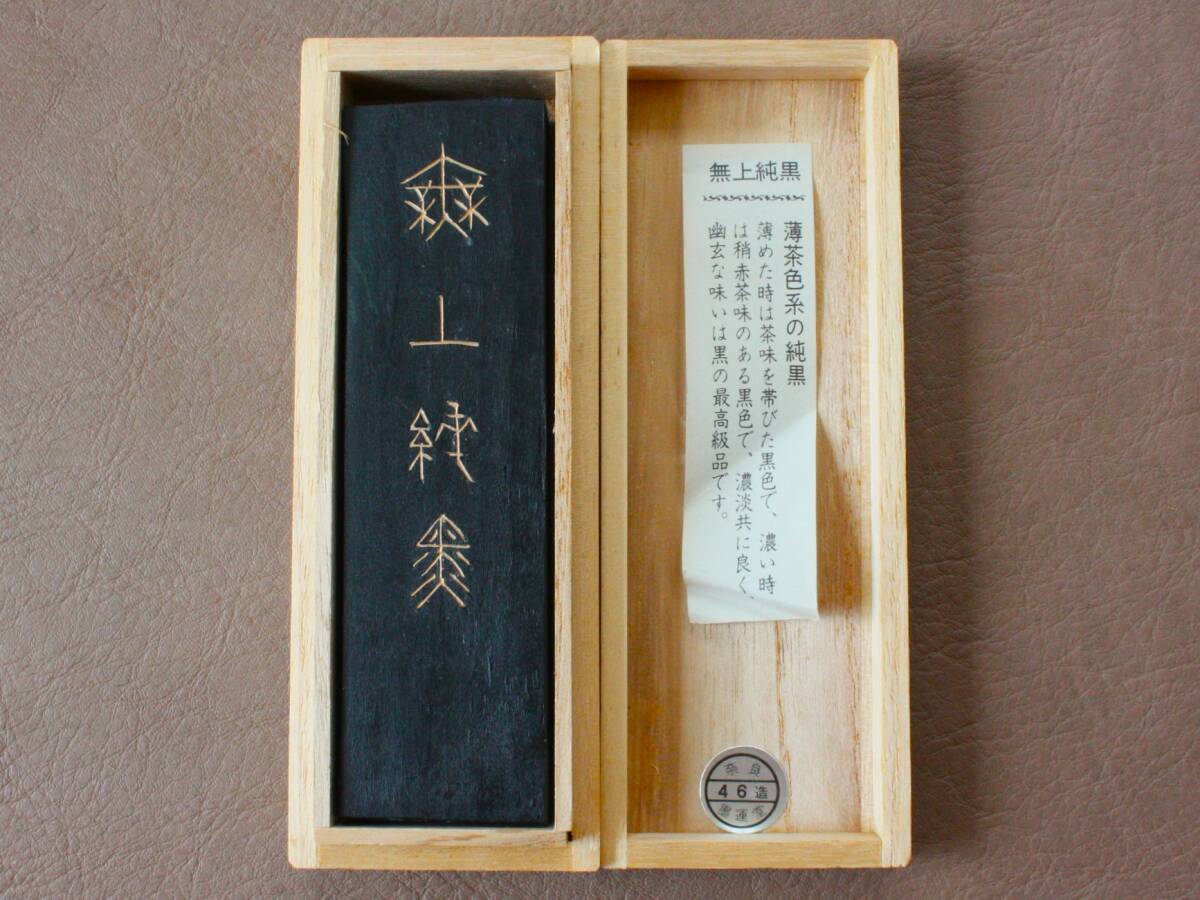 無上純黒
無上純黒
薄茶色系の純黒
薄めた時は茶味を帯びた黒色で、濃い時
は稍赤茶味のある黒色で、濃淡共に良く、
幽玄な味いは黒の最高級品です。
奈良
46造
墨運堂